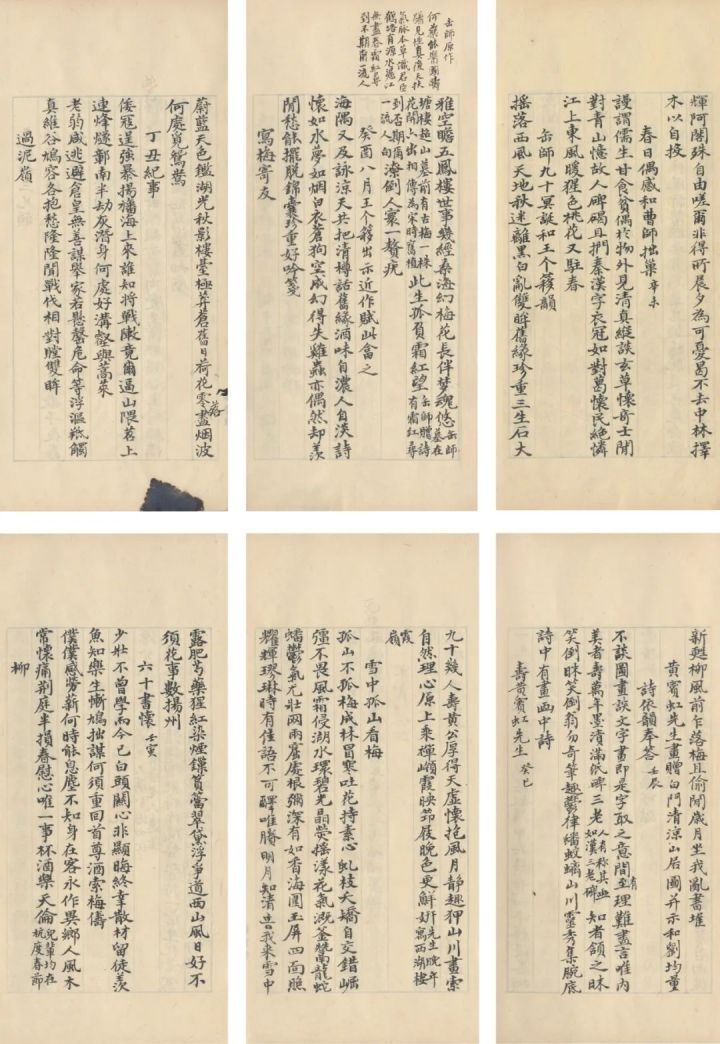 輝阿閣殊自由嗟爾非得所晨夕為可憂曷不去中林擇
木以自投
春日偶感和曹師拙巢 辛未
謾謂儒生甘食貧偶於物外見清真縱談玄草懷奇士閒
對青山憶故人碑碣且捫秦漢字衣冠如對葛懷民絕憐
江上東風暖猩色桃花又駐春
缶師九十冥誕和王个簃韻
搖落西風天地秋迷離黑白亂雙眸舊緣珍重三生石大
缶師原作
何藥能醫國
踌見性真復天扶
氣脉本草識君臣
鶴語有源水漁江
無盡春霜紅尋
到不期爾一流人
雅空瞻五鳳樓世事幾經秦海幻梅花長伴夢魂悠 缶師墓在
塘棲超山墓前有古梅一株
花開六出相傳為宋時舊植 此生孤負霜紅望 缶師贈詩有霜紅尋
到否期爾
一流人句 潦倒人寰一贅疣
癸酉八月王个簃出示近作賦此畣之
海隅又及詠涼天共把清樽話舊緣酒味自濃人自淡詩
懷如水夢如烟白衣蒼狗空成幻得失雞蟲亦偶然却羨
閒愁能擺脫錦囊珍重好吟箋
寫梅寄友
蔚藍天色鑑湖光秋影樓臺極莽蒼舊日荷花零盡烟波 落
何處覓鴛鴦
丁丑紀事
倭寇逞強暴揚旛海上來誰知將戰陳竟爾逼山隈苕上
連烽燧鄣南半劫灰潛身何處好溝壑與蒿萊
老穉咸逃避倉皇無善謀舉家若懸磬危命等浮漚羝觸
真維谷鳩容各抱愁隆隆聞戰伐相對瞠雙眸
過泥嶺
新甦柳風前乍落梅且偷閒歲月坐我亂書堆
黃賓虹先生畫贈白門清涼山居圖并示和劉均量
詩依韻奉答 壬辰
不談圖畫談文字畫即是字取之意間有至理難盡言唯內
美者壽萬年墨漬滿紙碑三老 人有稱其画如漢三老碑 知者頷之昧
笑倒昧笑倒翁勿奇筆趣鬱律蟠蛟螭山川靈秀集腕底
詩中有畫画中詩
壽黃賓虹先生 癸巳
九十幾人壽黃公厚得天虛懷抱風月靜趣狎山川畫索
自然理心原上乘禪嶺霞映筇屐晚色更鮮妍 先生晚年寫西湖棲
霞嶺
雪中孤山看梅
孤山不孤梅成林冒寒吐花持素心虬枝夭矯自交錯崛
彊不畏風霜侵湖水環碧光晶瑩搖漾花氣溉釜鬵南龍蛇
蟠鬱氣尤壯网雨窟處根彌深有如香海園玉屏四面照
耀輝璆琳時有佳語不可醳唯賸明月知清音我來雪中
露肥芍藥猩紅染煙鎖篔簹翠黛浮爭道西山風日好不
須花事數揚州
六十書懷 壬寅
少壯不曾學而今已白頭關心非顯晦終幸散材留徒羨
魚知樂生慚鳩拙謀何須重回首尊酒索梅儔
僕僕感勞薪何時能息塵不知身在客永作異鄉人風木
常懷痛荆庭半損春慰心唯一事杯酒樂天倫 兒輩均在杭度春節
柳